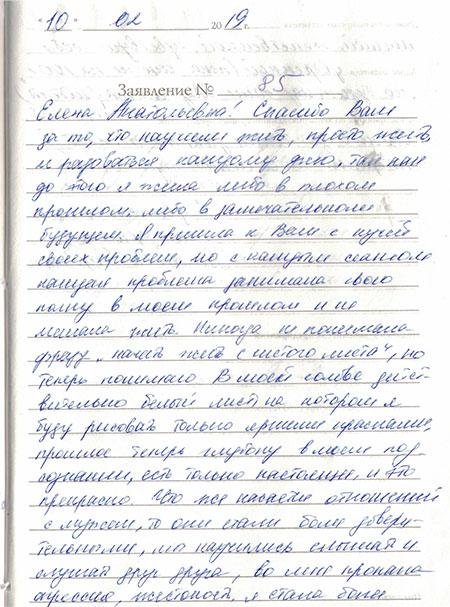 "10" 02 2019 г.
Заявление № 85
Елена Анатольевна! Спасибо Вам
за то, что научили жить, просто жить,
и радоваться каждому дню, так как
до того я жила либо в плохом
прошлом, либо в замечательном
будущем. Я пришла к Вам с кучей
своих проблем, но с каждым сеансом
каждая проблема занимала свою
полку в моем прошлом и не
мешала жить. Никогда не понимала
фразу "начать жить с чистого листа", но
теперь понимаю. В моей голове дейст-
вительно белый лист, на котором я
буду рисовать только яркими красками,
прошлое теперь глубоко в моем под-
сознании, есть только настоящее, и это
прекрасно. Что же касается отношений
с мужем, то они стали более довери-
тельными, мы научились слышать и
слушать друг друга, во мне пропала
агрессия, жестокость, я стала более